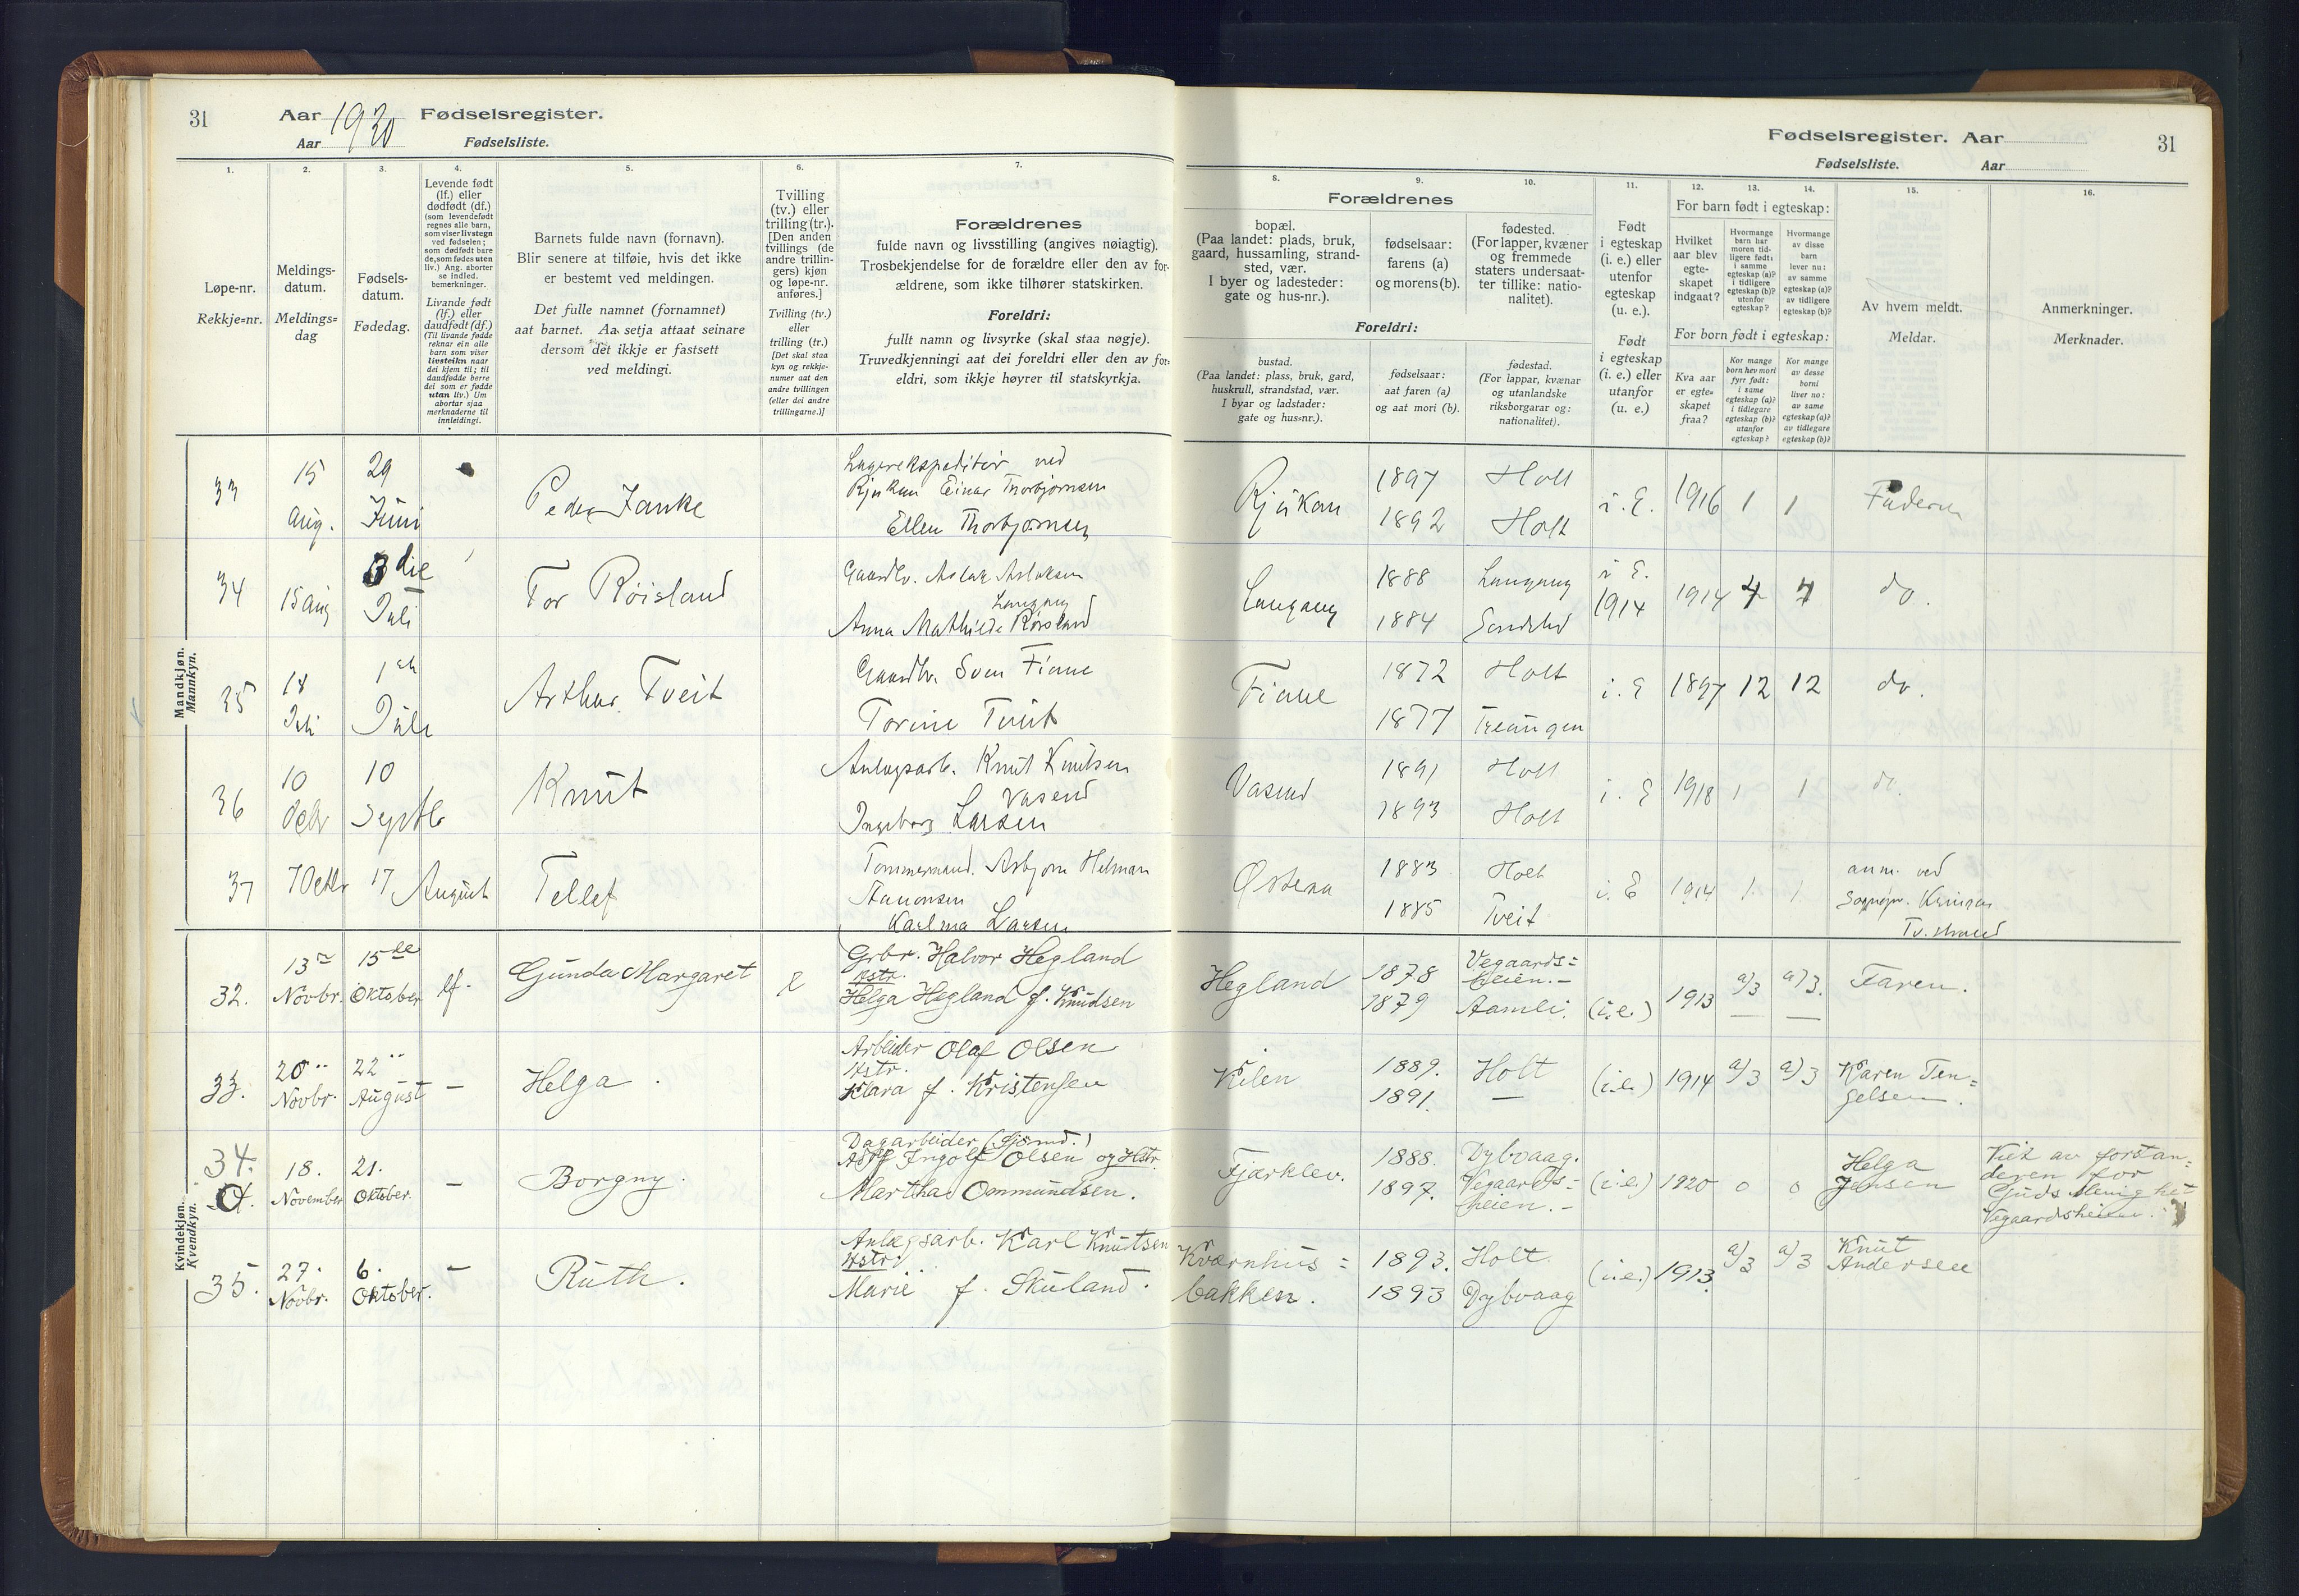 31
Aar 1920 Fødselsregister.
Aar Fødselsliste.
1.
2.
3.
4.
5.
6.
7.
Løpe-nr.
Rekkje-nr.
Meldings-
datum.
Meldings-
dag
Fødsels-
datum.
Fødedag.
Levende født
(lf.) eller
dødfødt (df.)
(som levendefødt
regnes alle barn,
som viser livstegn
ved fødselen;
som dødfødt bare
de, som fødes uten
liv.) Ang. aborter
se indled.
bemerkninger.
Livande født
(lf.) eller
daudfødt (df.)
(Til livande fødde
reknar ein alle
barn som viser
livsteikn naar
dei kjem til; til
daudfødde berre
dei som er fødde
utan liv.) Um
abortar sjaa
merknaderne til
innleidingi.
Barnets fulde navn (fornavn).
Blir senere at tilføie, hvis det ikke
er bestemt ved meldingen.
Det fulle namnet (fornamnet)
aat barnet. Aa setja attaat seinare
dersom det ikkje er fastsett
ved meldingi.
Tvilling
(tv.) eller
trilling (tr.).
[Den anden
tvillings (de
andre trillin-
gers) kjøn
og løpe-nr.
anføres.]
Tvilling (tv.)
eller
trilling (tr.)
[Det skal staa
kyn og rekkje-
numer aat den
andre tvillingen
(eller dei andre
trillingarne.)]
Forældrenes
fulde navn og livsstilling (angives nøiagtig).
Trosbekjendelse for de forældre eller den av for-
ældrene, som ikke tilhører statskirken.
Foreldri:
fullt namn og livsyrke (skal staa nøgje).
Truvedkjenningi aat dei foreldri eller den av for-
eldri, som ikkje høyrer til statskyrkja.
Mandkjøn.
Mannkyn.
33
15
Aug.
29
Juni
Peder Janke
Lagerekspeditør ved
Rjukan Einar Thorbjørnsen
Ellen Thorbjørnsen
34
15 Aug
3die
Juli
Tor Røisland
Gaardbr. Aslak Aslaksen
Langang
Anna Mathilde Røisland
35
18
Juli
Juli
Arthur Tveit
Gaardbr. Sven Fiane
Torine Tveit
36
10
Octbr
10
Septbr
Knut
Anlægsarb. Knut Knutsen
Vasend
Ingeborg Larsen
37
7 Octbr
17 August
Tellef
Tømmermand. Asbjørn Helman
Aanonsen
Karlma Larsen
Kvindekjøn.
Kvendkyn.
32.
13de
Novbr.
15de
Oktober
lf.
Gunda Margaret
Grbr. Halvor Hegland
Hstr.
Helga Hegland f. Knudsen
33.
20
Novbr.
22
August
—
Helga.
Arbeider Olaf Olsen
Hstr.
Klara f. Kristensen
34.
18.
November
21.
Oktober.
—
Borgny.
Dagarbeider (Sjømd.)
Adolf Ingolf Olsen og Hstr.
Martha Ommundsen.
35.
27.
Novbr.
6.
Oktober.
—
Ruth.
Anlægsarb. Karl Knutsen
Hstr.
Marie f. Skuland.
Fødselsregister. Aar
Fødselsliste. Aar
31
8.
9.
10.
11.
12.
13.
14.
15.
16.
Forældrenes
bopæl.
(Paa landet: plads, bruk,
gaard, hussamling, strand-
sted, vær.
I byer og ladesteder:
gate og hus-nr.).
fødselsaar:
farens (a)
og morens (b).
fødested.
(For lapper, kvæner
og fremmede
staters undersaat-
ter tillike: natio-
nalitet).
Foreldri:
bustad.
(Paa landet: plass, bruk, gard,
huskrull, strandstad, vær.
I byar og ladstader:
gate og hus-nr.).
fødselsaar:
aat faren (a)
og aat mori (b).
fødestad.
(For lappar, kvænar
og utanlandske
riksborgarar og:
nationalitet).
Født
i egteskap
(i. e.) eller
utenfor
egteskap
(u. e.).
Født
i egteskap
(i. e.) eller
utanfor
(u. e.)
For barn født i egteskap:
Hvilket
aar blev
egte-
skapet
indgaat?
Hvormange
barn har
moren tid-
ligere født:
i samme
egteskap (a)?
i tidligere
egteskap (b)?
utenfor
egteskap?
Hvormange
av disse
barn
lever nu:
av samme
egteskap (a)?
av tidligere
egteskap (b)?
For born født i egteskap:
Kva aar
er egte-
skapet
fraa?
Kor mange
born hev mori
fyrr født:
i same
egteskap (a)?
i tidlegare
egteskap (b)?
utanfor
egteskap?
Kor mange
av desse
borni
liver no:
av same
egteskap (a)?
av tidlegare
egteskap (b)?
Av hvem meldt.
Meldar.
Anmerkninger.
Merknader.
Rjukan
1897
1892
Holt
Holt
i. E.
1916
1
1
Faderen
Langang
1888
1884
Langang
Søndeled
i E.
1914
1914
do.
Fiane
1872
1877
Holt
Treungen
i. E
1897
12
12
do.
Vasend
1891
1893
Holt
Holt
i. E
1918
1
1
do.
Østeraa
1883
1885
Holt
Tveit
i. E
1914
1
1
anm. ved
Tv.strand
Hegland
1878
1879
Vegaards=
heien.-
Aamli.
(i.e.)
1913
a/3
a/3.
Faren.
Kilen
1889.
1891.
Holt
—
(i.e.)
1914
a/3
a/3
Karen Ten=
gelsen.
Fjærklev.
1888.
1897.
Dybvaag.
Vegaards=
heien.-
(i.e.)
1920
0
0
Helga
Jensen
Viet av forstan=
deren for
Guds Menighet
Vegaardsheien.
Kværnhus=
bakken.
1893.
1893
Holt
Dybvaag
(i.e.)
1913.
a/3
a/3
Knut
Andersen